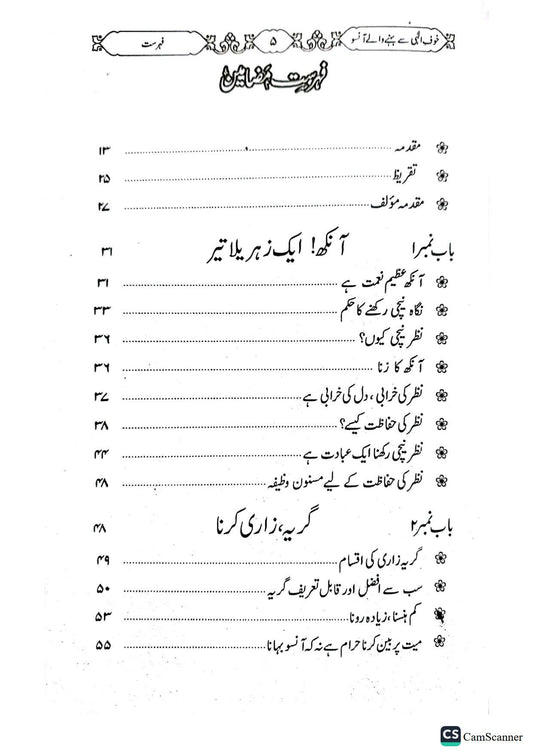 خوف الٰہی سے بہنے والے آنسو ۵ فہرست
فہرست مضامین
مقدمہ ۱۳
تقریظ ۲۵
مقدمہ مؤلف ۲۷
باب نمبر۱ آنکھ! ایک زہریلا تیر ۳۱
آنکھ عظیم نعمت ہے ۳۱
نگاہ نیچی رکھنے کا حکم ۳۳
نظر نیچی کیوں؟ ۳۶
آنکھ کا زنا ۳۶
نظر کی خرابی، دل کی خرابی ہے ۳۷
نظر کی حفاظت کیسے؟ ۳۸
نظر نیچی رکھنا ایک عبادت ہے ۴۴
نظر کی حفاظت کے لیے مسنون وظیفہ ۴۸
باب نمبر۲ گریہ، زاری کرنا ۴۸
گریہ زاری کی اقسام ۴۹
سب سے افضل اور قابل تعریف گریہ ۵۰
کم ہنسنا، زیادہ رونا ۵۳
میت پر بین کرنا حرام ہے نہ کہ آنسو بہانا ۵۵
CS CamScanner